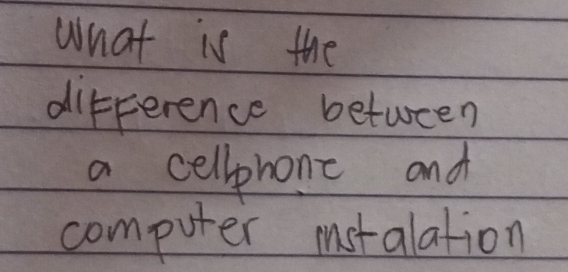 What is the
difference between
a cellphone and
computer instalation